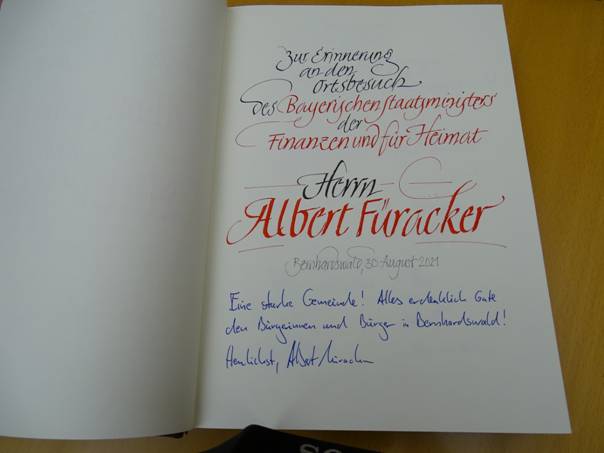 zur Erinnerung
an den
Ortsbesuch
des Bayerischen Staatsministers
der
Finanzen und für Heimat
Herrn
Albert Füracker
Bernhardswald, 30. August 2021
Eine starke Gemeinde! Alles erdenklich Gute
den Bürgerinnen und Bürger in Bernhardswald!
Herzlichst, Albert Füracker